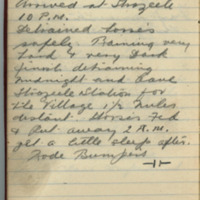 Arrived at Strazeele
10 P.M.
Detrained horses
safely. Raining very
hard & very dark
finish detraining
midnight and leave
Strazeele Station for
the Village 1½ miles
distant. Horses fed
& put away 2 A.M.
get a little sleep after.
Rode Bumpers